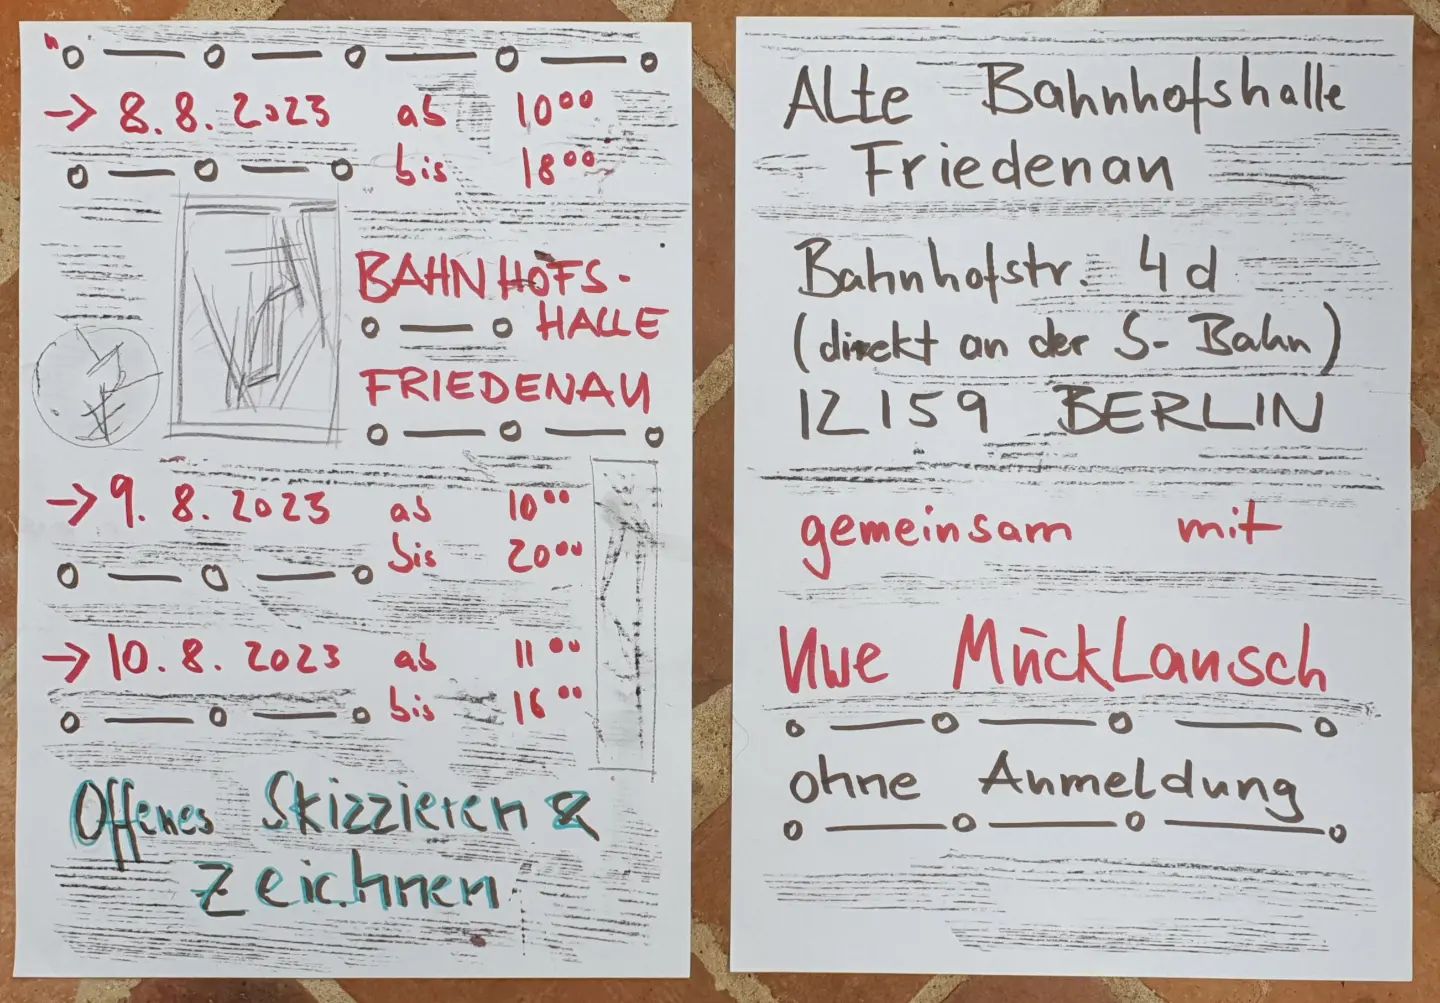 → 8.8.2023 ab 10⁰⁰
bis 18⁰⁰
BAHNHOFS-
HALLE
FRIEDENAU
→ 9.8.2023 ab 10⁰⁰
bis 20⁰⁰
→ 10.8.2023 ab 11⁰⁰
bis 16⁰⁰
Offenes Skizzieren &
Zeichnen
Alte Bahnhofshalle
Friedenau
Bahnhofstr. 4d
(direkt an der S-Bahn)
12159 BERLIN
gemeinsam mit
Uwe Mücklausch
ohne Anmeldung